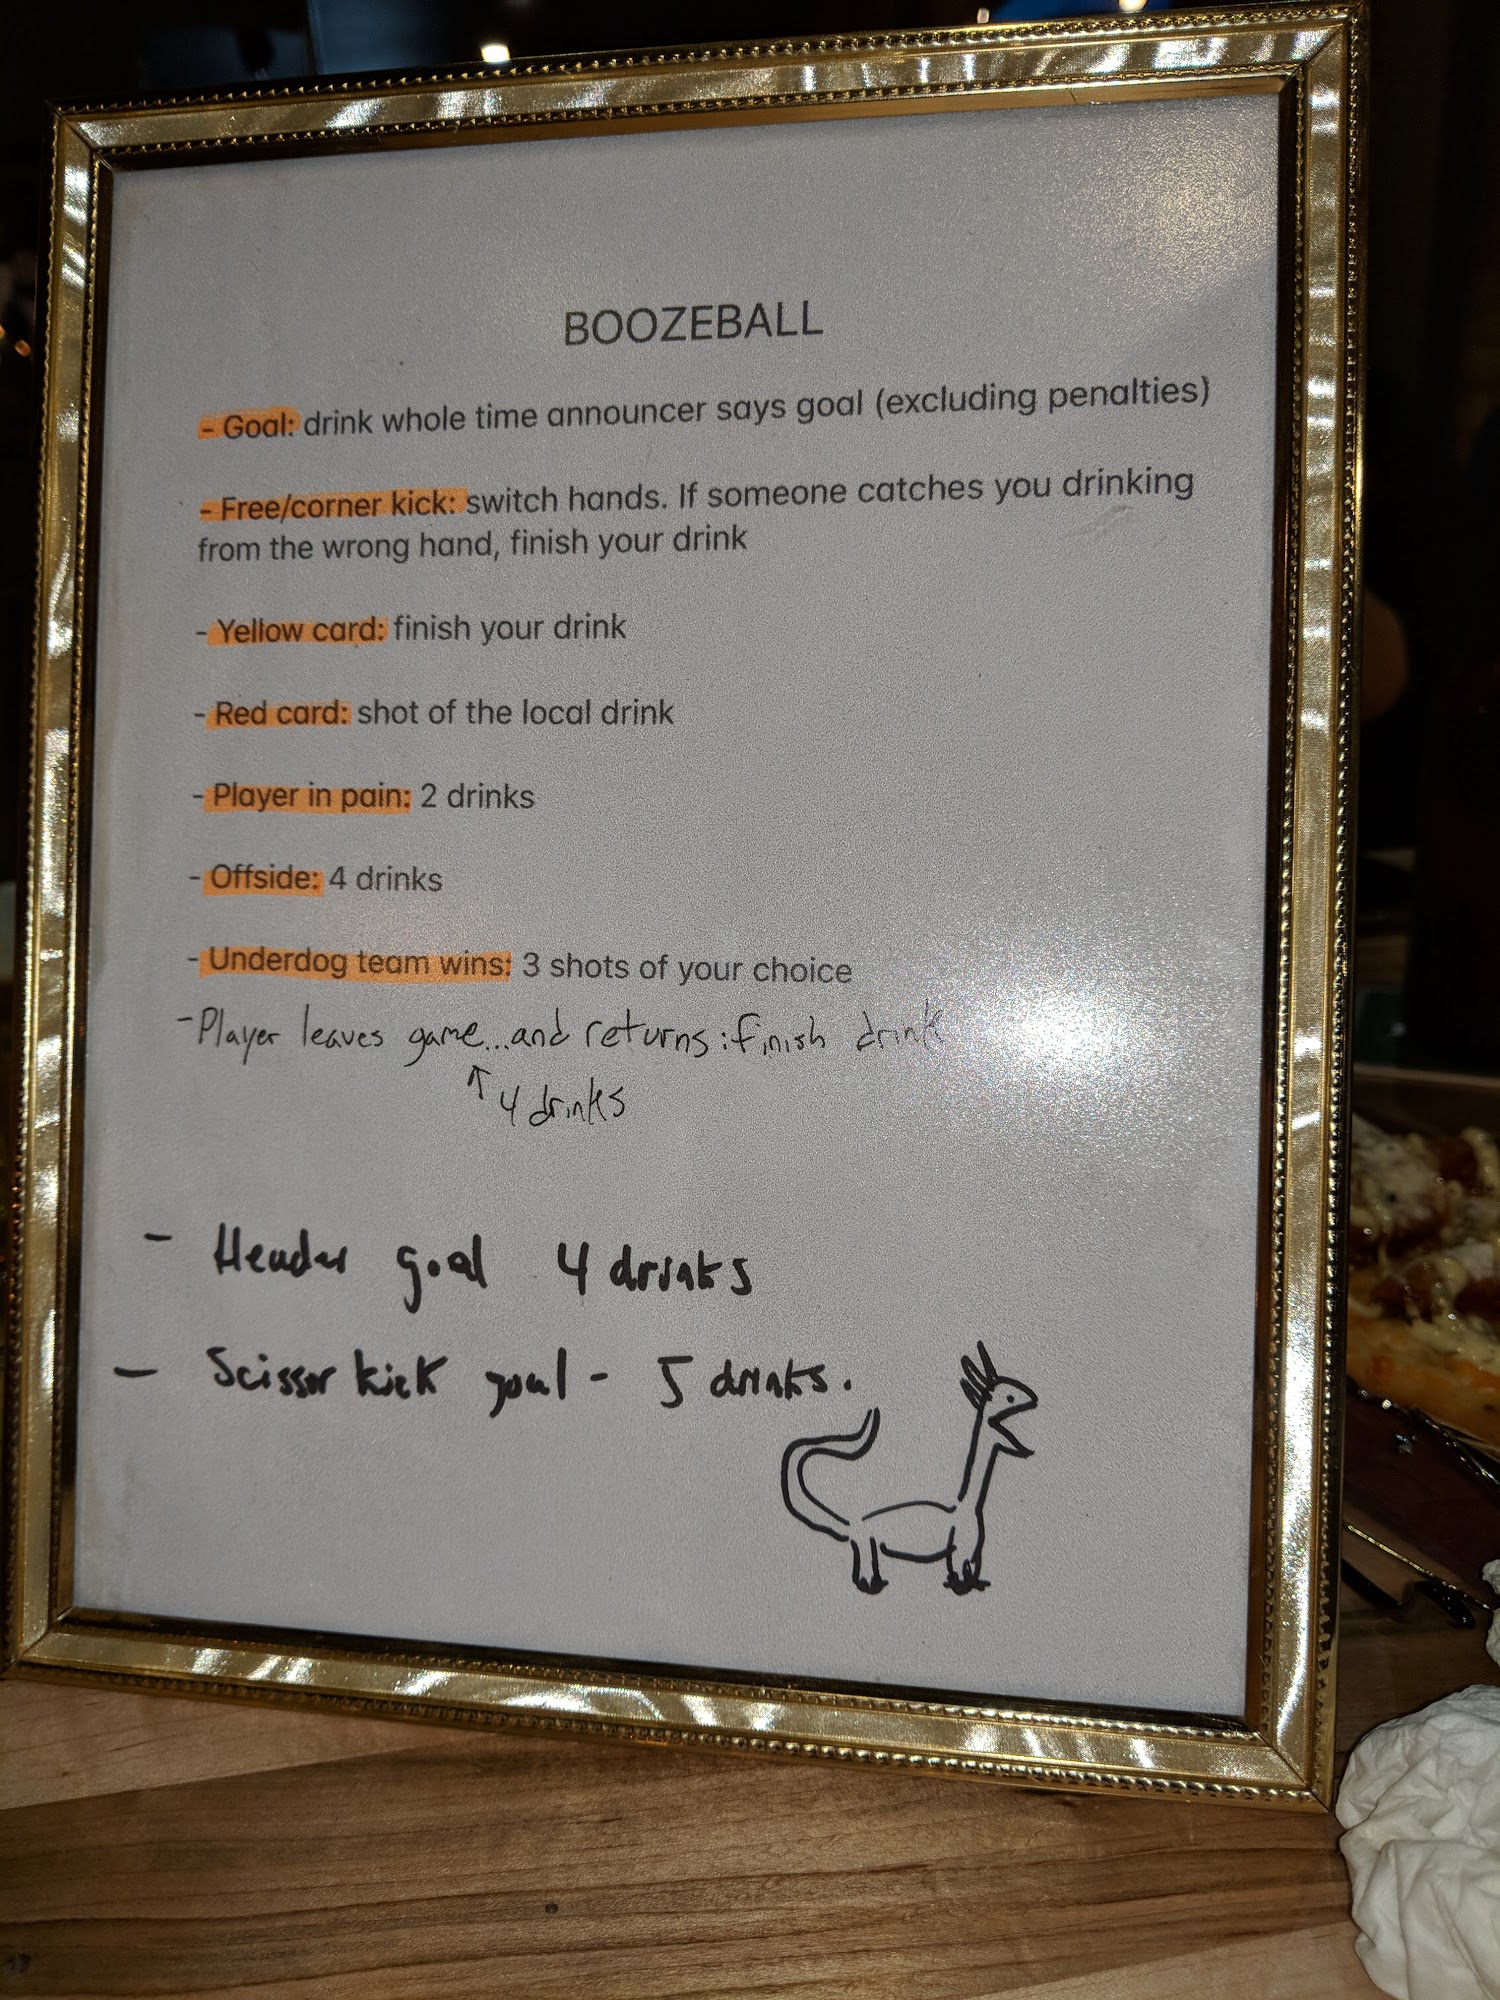 BOOZEBALL
- Goal: drink whole time announcer says goal (excluding penalties)
- Free/corner kick: switch hands. If someone catches you drinking
from the wrong hand, finish your drink
- Yellow card: finish your drink
- Red card: shot of the local drink
- Player in pain: 2 drinks
- Offside: 4 drinks
- Underdog team wins: 3 shots of your choice
- Player leaves game...and returns: finish drink
↑ 4 drinks
- Header goal 4 drinks
- Scissor kick goal - 5 drinks.